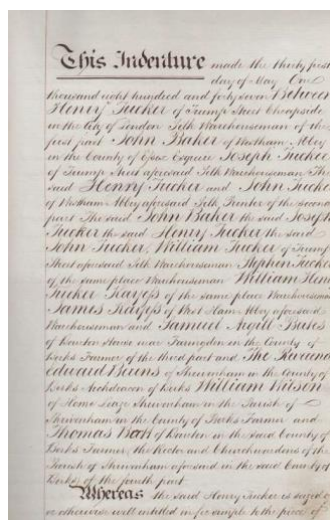 This Indenture made the thirty first
day of May One
thousand eight hundred and forty seven Between
Henry Tucker of Trump Street Cheapside
in the City of London Silk Warehouseman of the
first part John Baker of Westham Abbey
in the County of Essex Esquire Joseph Tucker
of Trump Street aforesaid Silk Warehouseman The
said Henry Tucker and John Tucker
of Westham Abbey aforesaid Silk Printer of the second
part The said John Baker the said Joseph
Tucker the said Henry Tucker the said
John Tucker, William Tucker of Trump
Street aforesaid Silk Warehouseman Stephen Tucker
of the same place Warehouseman William Henry
Tucker of the same place Warehouseman
James of West Ham Abbey aforesaid
Warehouseman and Samuel
of House near Faringdon in the County of
Berks Farmer of the third part and The Reverend
Edward of Shrivenham in the County of
Berks Archdeacon of Berks William Wilson
of Home Leaze Shrivenham in the Parish of
Shrivenham in the County of Berks Farmer and
Thomas of in the said County of
Berks Farmer, the Rector and Churchwardens of the
Parish of Shrivenham aforesaid in the said County of
Berks of the fourth part
Whereas the said Henry Tucker is seized of
or otherwise well entitled in fee simple to the piece of